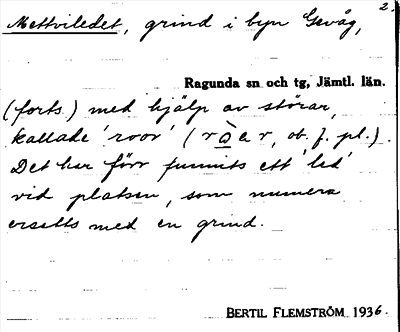 2.
Mettviledet, grind i byn Gevåg,
Ragunda sn och tg, Jämtl. län.
(forts.) med hjälp av störar,
kallade 'roor' (ròar, ob. f. pl.).
Det har förr funnits ett 'led'
vid platsen, som numera
ersatts med en grind.
BERTIL FLEMSTRÖM 1936.